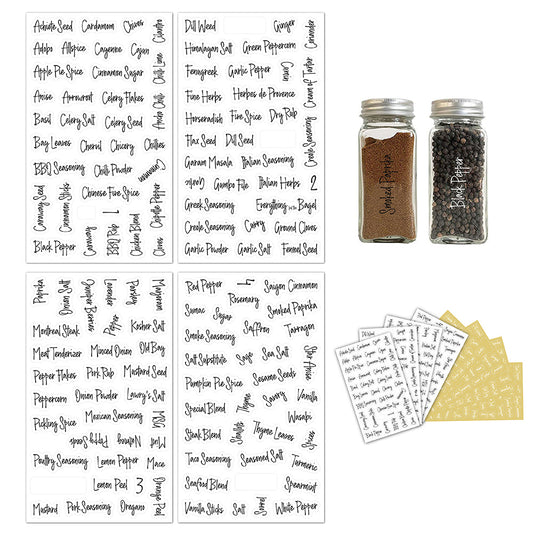 Achiote Seed Cardamom Chives Cilantro
Adobo Allspice Cayenne Cajun
Apple Pie Spice Cinnamon Sugar Chili Lime
Anise Arrowroot Celery Flakes Ancho Chili
Basil Celery Salt Celery Seed
Bay Leaves Chervil Chicory Chillies
BBQ Seasoning Chili Powder Cinnamon
Caraway Seed Cinnamon Sticks Chinese Five Spice
Black Pepper Caraway BBQ Rub 1 Chicken Blend Cloves Chipotle Pepper
Dill Weed Ginger Coriander
Himalayan Salt Green Peppercorn
Fenugreek Garlic Pepper Cumin Cream of Tartar
Fine Herbs Herbes de Provence
Horseradish Fire Spice Dry Rub
Flax Seed Dill Seed Creole Seasoning
Garam Masala Italian Seasoning
Garlic Gumbo File Italian Herbs 2
Greek Seasoning Everything Bagel
Creole Seasoning Curry Ground Cloves
Garlic Powder Garlic Salt Fennel Seed
Smoked Paprika
Black Pepper
Paprika Onion Salt Juniper Berries Lavender Parsley Marjoram
Montreal Steak Pepper Kosher Salt
Meat Tenderizer Minced Onion Old Bay
Pepper Flakes Pork Rub Mustard Seed
Peppercorn Onion Powder Lawry's Salt
Pickling Spice Mexican Seasoning MSG
Nutmeg Poppy Seeds Mint
Poultry Seasoning Lemon Pepper Mace
Lemon Peel 3 Orange Peel
Mustard Pork Seasoning Oregano
Red Pepper 4 Saigon Cinnamon
Sumac Sugar Rosemary Smoked Paprika
Smoke Seasoning Saffron Tarragon
Salt Substitute Sage Sea Salt Star Anise
Pumpkin Pie Spice Sesame Seeds
Special Blend Thyme Savory Vanilla
Steak Blend Shallots Thyme Leaves Wasabi Spices
Taco Seasoning Seasoned Salt Turmeric
Seafood Blend Spearmint
Vanilla Sticks Salt White Pepper